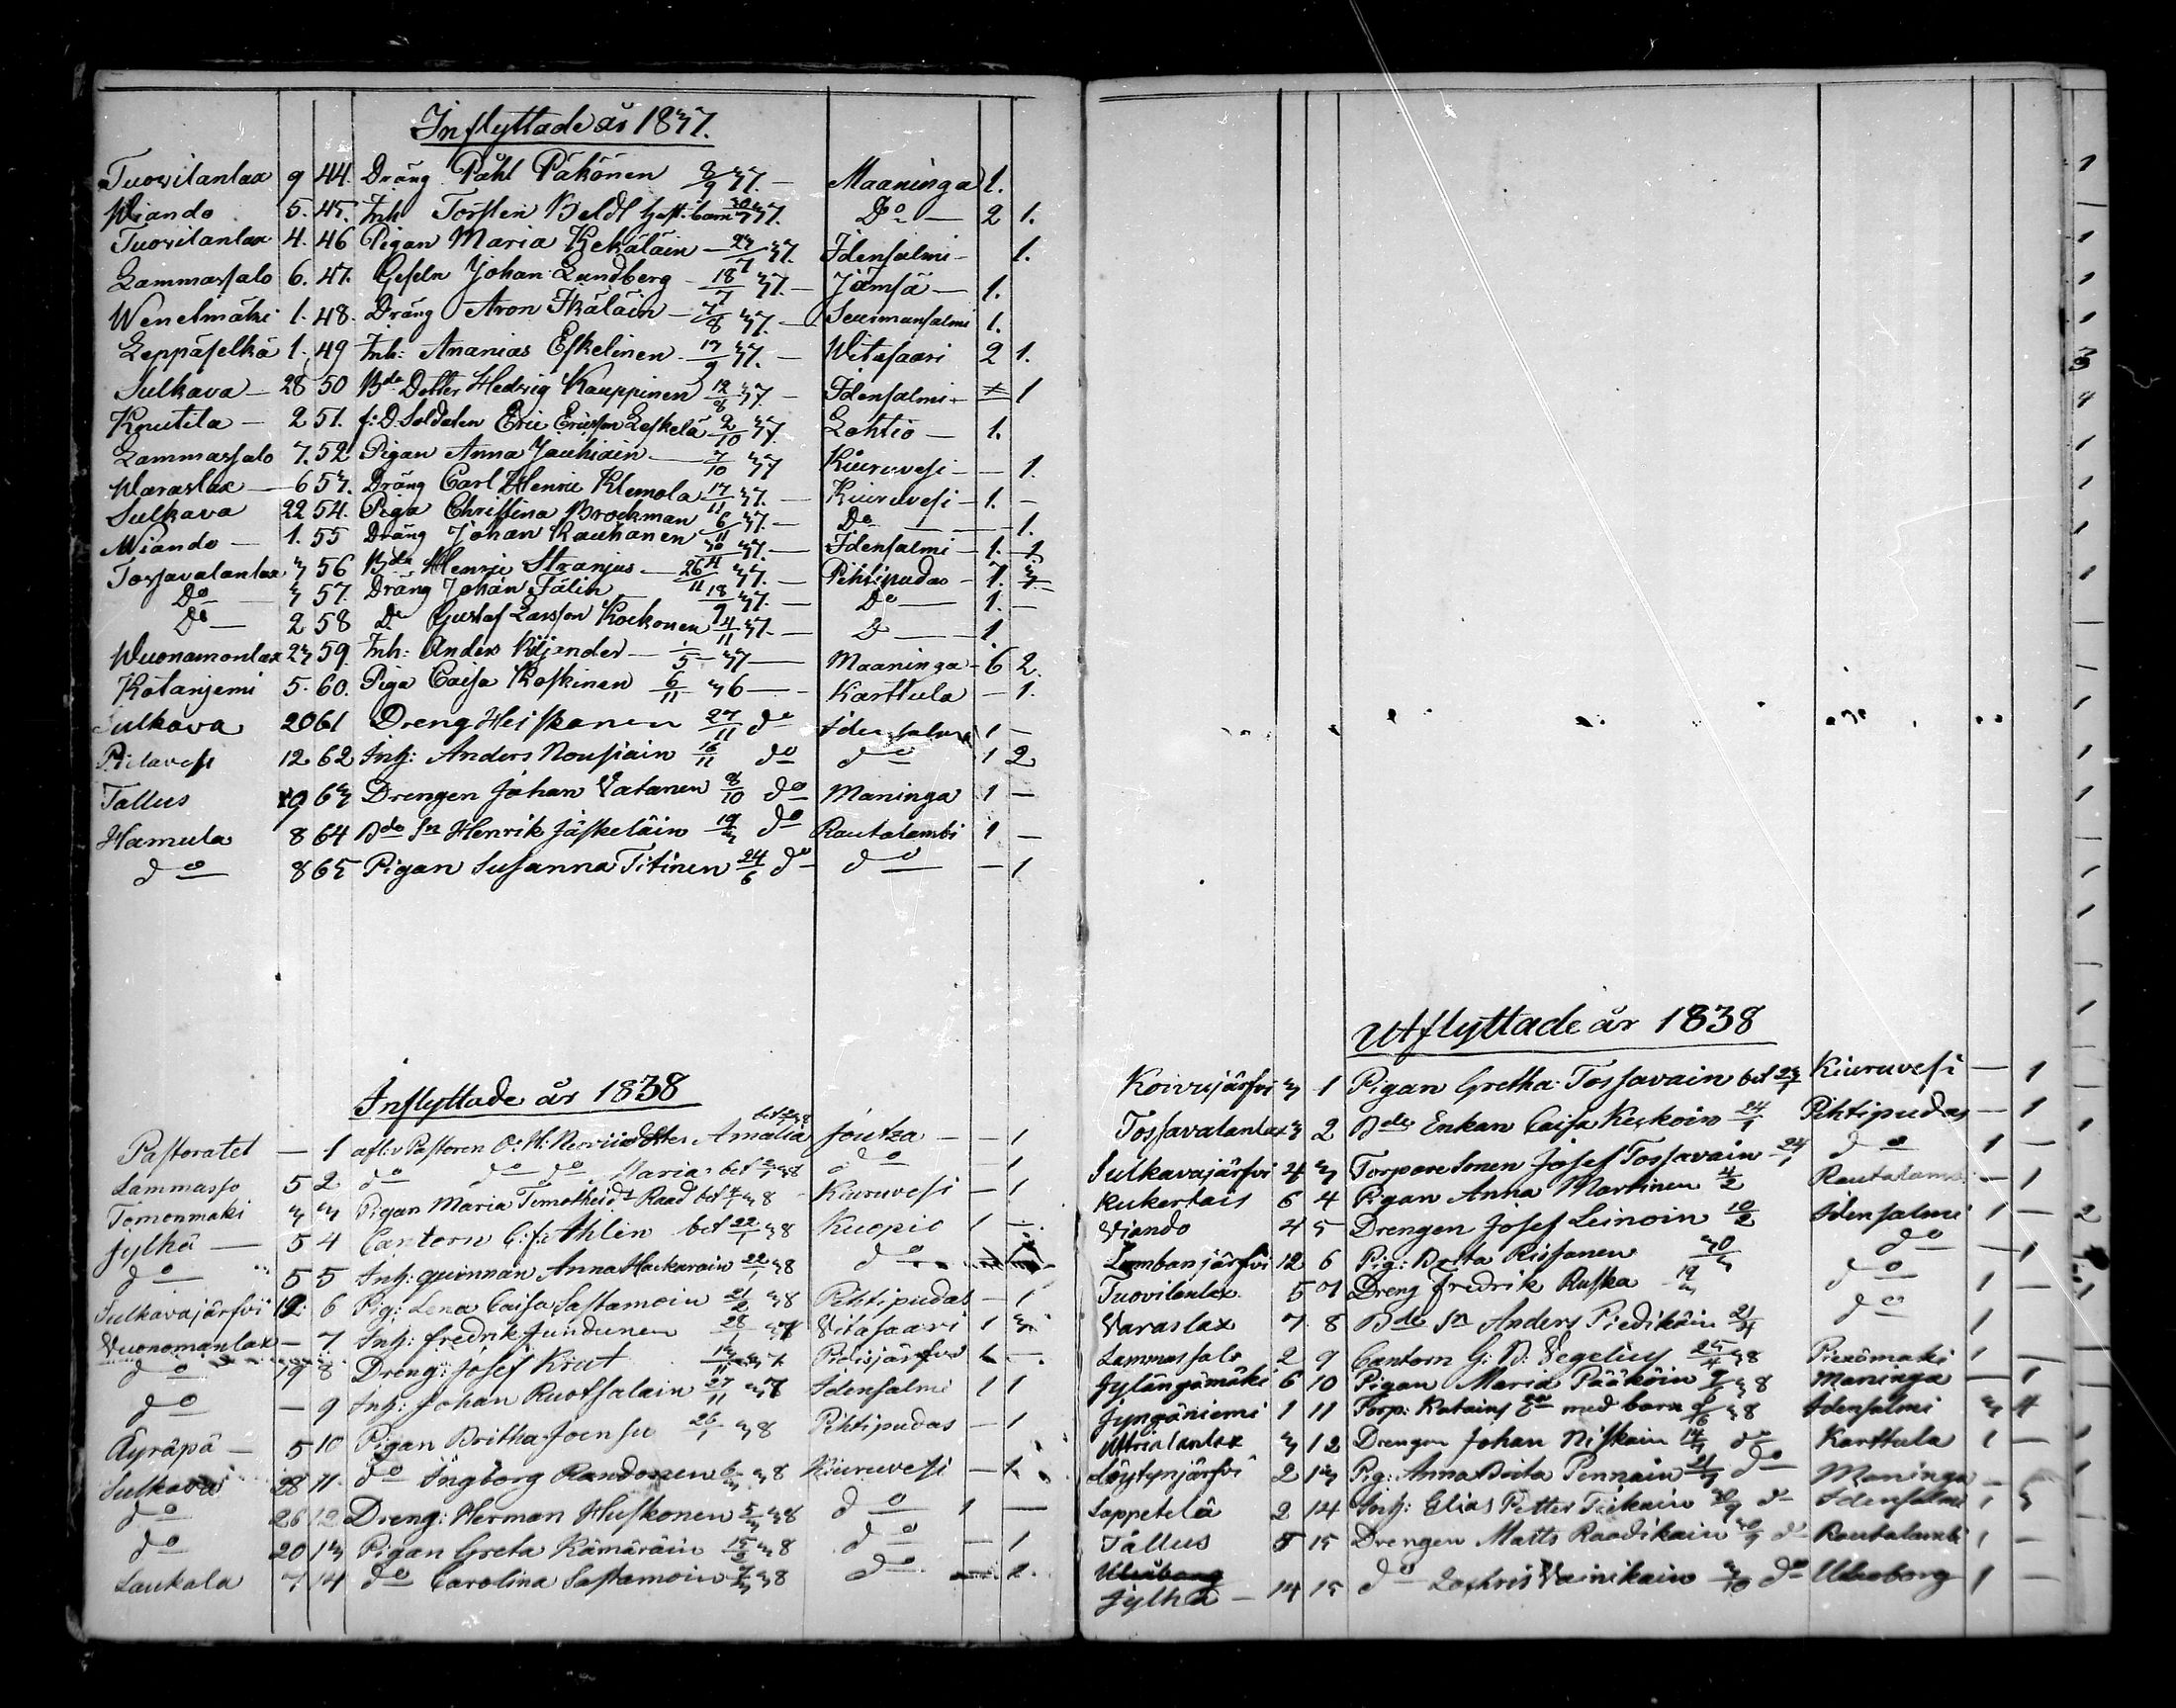 Inflyttade år 1837.
Tuovilanlax 9 44. Dräng Påhl Päkönen 8/9 37. — Maaninga 1.
Wiando 5. 45. Inh Torsten Beldt hust. barn 30/7 37. Do — 2 1.
Tuovilanlax 4. 46 Pigan Maria Kekäläin — 23/7 37. Idensalmi — 1.
Lammassalo 6. 47. Geseln Johan Lundberg — 18/7 37. — Jämsä — 1.
Wenelmäki 1. 48. Dräng Aron Ikäläin — 7/8 37. — Suomusalmi 1.
Leppäselkä 1. 49 Inh: Ananias Eskelinen 17/9 37. — Witasaari 2 1.
Sulkava — 28 50 Bde Dotter Hedvig Kauppinen 12/8 37 — Idensalmi — 1
Koutila — 2 51. f:D. Soldaten Eric Ericsson Leskelä 2/10 37. Lohtio — 1.
Lammassalo 7. 52 Pigan Anna Jauhiain — 7/10 37 Kiuruvesi — — 1.
Waraslax — 6 53. Dräng Carl Henric Klemola 17/11 37. — Kiuruvesi — 1. —
Sulkava 22 54. Piga Christina Brockman 6/11 37. — Do — 1.
Wiando — 1. 55 Dräng Johan Kauhanen 30 37. — Idensalmi — 1. 1
Tossavalanlax 3 56 Bde Henric Stranius — 26/11 37. — Pihtipudas — 1. 3
Do — 3 57. Dräng Johan Fälin 18/9 37. — Do — 1. —
Do — 2 58 Do Gustaf Larsson Kockonen 4/11 37. — D — 1
Wuonamonlax 23 59. Inh: Anders Kiljander — 1/5 37 — Maaninga — 6 2.
Kotanjemi 5. 60. Piga Caisa Koskinen 6/11 36 — Karttula — 1.
Sulkava 20 61 Dreng Heiskanen 27/11 do Idensalmi 1 —
Pielavesi 12 62 Inh: Anders Nousiain 16/11 do do 1 2
Tallus 9 63 Drengen Johan Vatanen 8/10 do Maninga 1 —
Hamula 8 64 Bde Sn Henrik Jäskeläin 19/3 do Rautalambi 1 —
do 8 65 Pigan Susanna Titinen 24/6 do do — 1
Inflyttade år 1838
Pastoratet — 1 afl: v Pastoren O: H: dotter Amalia Joutza — — 1
Lammasso 5 2 do do do Maria do — 1
Tomonmäki 3 3 Pigan Maria Timotheid Raad bet 4/1 38 Kiuruvesi — 1
Jylhä — 5 4 Cantorn C: f: Ahlin bet 22/1 38 Kuopio 1 —
do 5 5 Inh: quinnan Anna Hackarain 22/1 38 do
Sulkavajärfvi 12 6 Pig: Lena Caisa Sastamoin 21/2 38 Pihtipudas — 1
Vuonomanlax — 7 Inh: fredrik Jundunen 28/1 37 Vitasaari 1 3
do 19 8 Dreng: Josef Krut 13/11 37 Pidisjärfvi 1 —
do — 9 Inh: Johan Ruotsalain 27/11 37 Idensalmi 1 1
Äyräpä — 5 10 Pigan Britha Joensu 26/1 38 Pihtipudas — 1
Sulkava 28 11. do Ingborg Randonen 6/3 38 Kiuruvesi — 1.
do 26 12 Dreng: Herman Huskonen 5/3 38 do 1 —
do 20 13 Pigan Greta Kämäräin 15/2 38 do — 1
Laukala 7 14 do Carolina Sastamoin 7/3 38 do — 1.
Utflyttade år 1838
Koivujärfvi 3 1 Pigan Gretha Tossavain bet 23/1 Kiuruvesi — 1
Tossavalanlax 3 2 Bde Enkan Caisa Keskoin 24/1 Pihtipudas — 1
Sulkavajärfvi 4 3 Torpare Sonen Josef Tossavain 24/1 do 1 —
Kukertais 6 4 Pigan Anna Martinen 4/2 Rautalambi — 1
Viando 4 5 Drengen Josef Leinoin 10/2 Idensalmi 1 —
Lambanjärfvi 12 6 Pig: Brita Rissanen 30/3 do — 1
Tuovilanlax 5 7 Dreng fredrik Ruska 19/3 do 1 —
Varaslax 7 8 Bde Sn Anders Piedikäin 21/4 do 1
Lammassalo 2 9 Cantorn G: B: Vegelius 25/4 38 Piexämäki 1 —
Jylängämäki 6 10 Pigan Maria Pääköin 9/6 38 Maninga — 1
Jyngäniemi 1 11 Torp: Katains Ea med barn 38 Idensalmi 3 4
3 12 Drengen Johan Niskain 14/7 do Karttula 1 —
Löytynjärfvi 2 13 Pig: Anna Brita Pennain 21/7 do Maninga — 1
Sappetelä 2 14 Inh: Elias Petter Tiikain 30/9 do Idensalmi 1 3
Tallus 5 15 Drengen Matts Raadikain 30/9 do Rautalambi 1 —
Uleåborg
Jylhä — 14 15 do Zachris Vainikain 3/10 do Uleoborg 1 —